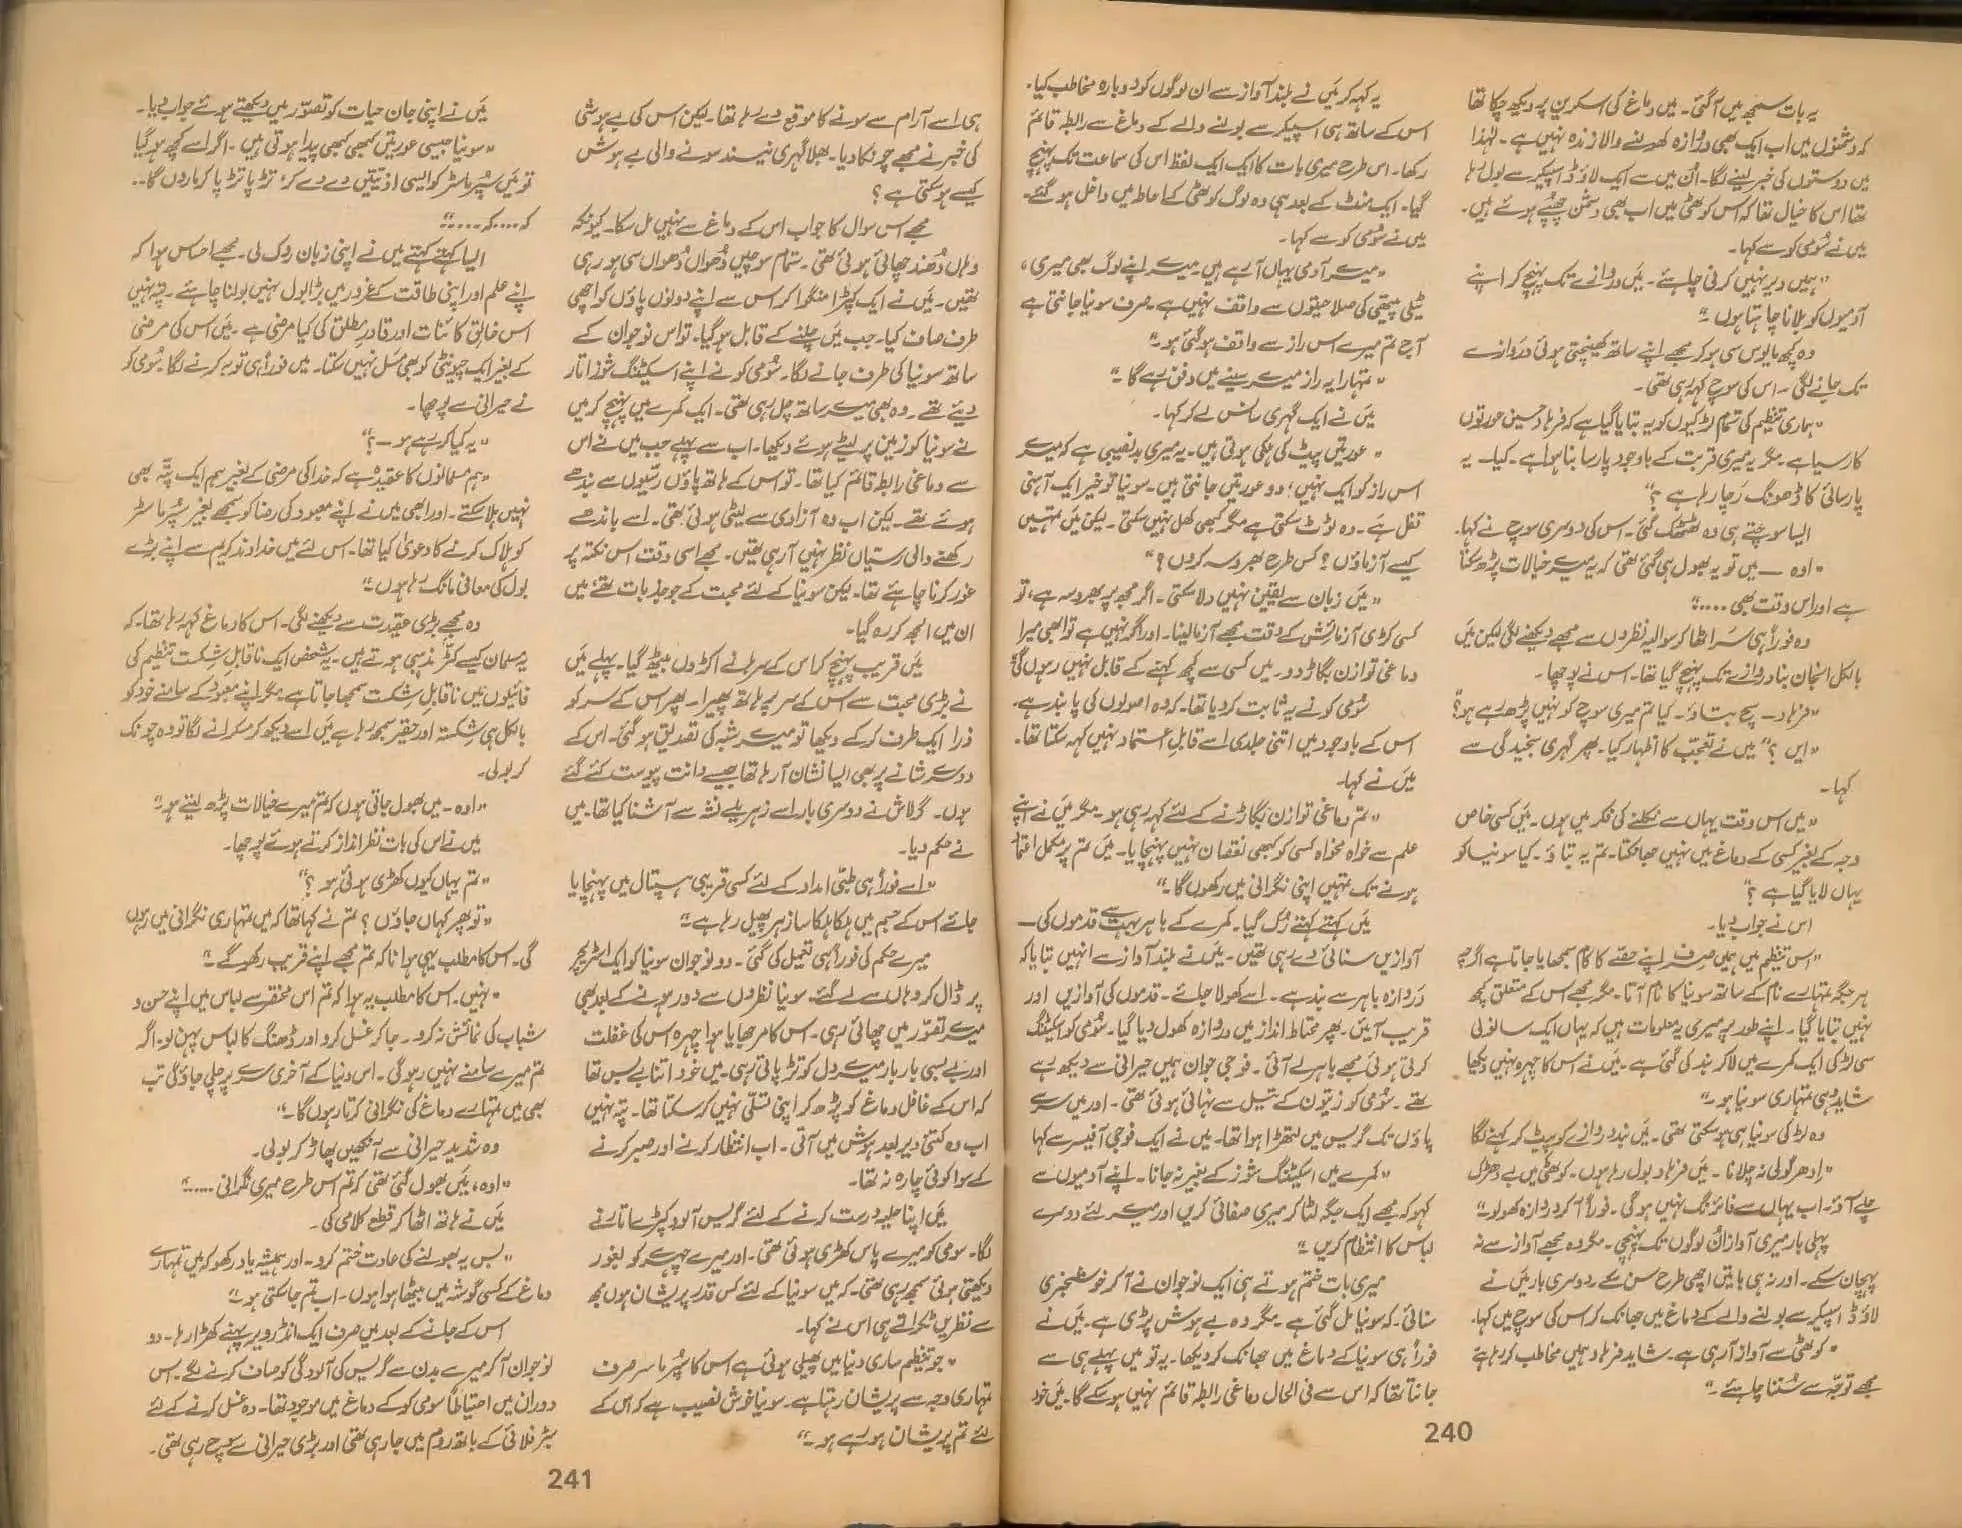 یہ بات سمجھ میں آگئی۔ میں دماغ کی اسکرین پر دیکھ چکا تھا
کہ دشمنوں میں اب ایک بھی دروازہ کھولنے والا زندہ نہیں ہے۔ لہٰذا
میں دوستوں کی خبر لینے لگا۔ اُن میں سے ایک لاؤڈ اسپیکر سے بول رہا
تھا اس کا خیال تھا کہ اس کوٹھی میں اب بھی دشمن چھپے ہوئے ہیں۔
میں نے شومی کو سے کہا۔
"ہمیں دیر نہیں کرنی چاہئے۔ میں دروازے تک پہنچ کر اپنے
آدمیوں کو بلانا چاہتا ہوں۔"
وہ کچھ مایوس سی ہو کر مجھے اپنے ساتھ کھینچتی ہوئی دروازے
تک جانے لگی۔ اس کی سوچ کہہ رہی تھی۔
"ہماری تنظیم کی تمام لڑکیوں کو یہ بتایا گیا ہے کہ فرہاد حسین عورتوں
کا رسیا ہے۔ مگر یہ میری قربت کے باوجود پارسا بنا ہوا ہے۔ کیا۔ یہ
پارسائی کا ڈھونگ رچا رہا ہے؟"
ایسا سوچتے ہی وہ ٹھٹھک گئی۔ اس کی دوسری سوچ نے کہا۔
"اوہ ــ میں تو یہ بھول ہی گئی تھی کہ یہ میرے خیالات پڑھ سکتا
ہے اور اس وقت بھی ....."
وہ فوراً ہی سَر اٹھا کر سوالیہ نظروں سے مجھے دیکھنے لگی لیکن میں
بالکل انجان بنا دروازے تک پہنچ گیا تھا۔ اس نے پوچھا۔
"فرہاد۔ سچ بتاؤ۔ کیا تم میری سوچ کو نہیں پڑھ رہے ہو؟
"ایں ؟" میں نے تعجب کا اظہار کیا۔ پھر گہری سنجیدگی سے
کہا۔
"میں اس وقت یہاں سے نکلنے کی فکر میں ہوں۔ میں کسی خاص
وجہ کے بغیر کسی کے دماغ میں نہیں جھانکتا۔ تم یہ بتاؤ۔ کیا سونیا کو
یہاں لایا گیا ہے ؟"
اس نے جواب دیا۔
"اس تنظیم میں ہمیں صرف اپنے حصّے کا کام سمجھایا جاتا ہے اگرچہ
ہر جگہ تمہارے نام کے ساتھ سونیا کا نام آتا۔ مگر مجھے اس کے متعلق کچھ
نہیں بتایا گیا۔ اپنے طور پر میری یہ معلومات ہیں کہ یہاں ایک سانولی
سی لڑکی ایک کمرے میں لاکر بند کی گئی ہے۔ میں نے اس کا چہرہ نہیں دیکھا
شاید وہی تمہاری سونیا ہو۔"
وہ لڑکی سونیا ہی ہو سکتی تھی۔ میں بند دروازے کو پیٹ کر کہنے لگا
"ادھر گولی نہ چلانا۔ میں فرہاد بول رہا ہوں۔ کوٹھی میں بے دھڑک
چلے آؤ۔ اب یہاں سے فائرنگ نہیں ہوگی۔ فوراً آکر دروازہ کھولو۔"
پہلی بار میری آواز ان لوگوں تک پہنچی۔ مگر وہ مجھے آواز سے نہ
پہچان سکے۔ اور نہ ہی باتیں اچھی طرح سن سکے۔ دوسری بار میں نے
لاؤڈ اسپیکر سے بولنے والے کے دماغ میں جھانک کر اس کی سوچ میں کہا۔
"کوٹھی سے آواز آ رہی ہے۔ شاید فرہاد ہمیں مخاطب کر رہا ہے
مجھے توجّہ سے سُننا چاہئے۔"
یہ کہہ کر میں نے بلند آواز سے ان لوگوں کو دوبارہ مخاطب کیا۔
اس کے ساتھ ہی اسپیکر سے بولنے والے کے دماغ سے رابطہ قائم
رکھا۔ اس طرح میری بات کا ایک ایک لفظ اس کی سماعت تک پہنچ
گیا۔ ایک منٹ کے بعد ہی وہ لوگ کوٹھی کے احاطہ میں داخل ہو گئے۔
میں نے شومی کو سے کہا۔
"میرے آدمی یہاں آ رہے ہیں۔ میرے اپنے لوگ بھی میری،
ٹیلی پیتھی کی صلاحیتوں سے واقف نہیں ہے۔ صرف سونیا جانتی ہے
آج تم میرے اس راز سے واقف ہو گئی ہو۔"
"تمہارا یہ راز میرے سینے میں دفن رہے گا۔"
میں نے ایک گہری سانس لے کر کہا۔
"عورتیں پیٹ کی ہلکی ہوتی ہیں۔ یہ میری بدنصیبی ہے کہ میرے
اس راز کو ایک نہیں؛ دو عورتیں جانتی ہیں۔ سونیا تو خیر ایک آہنی
قفل ہے۔ وہ ٹوٹ سکتی ہے مگر کبھی کھل نہیں سکتی۔ لیکن میں تمہیں
کیسے آزماؤں؟ کس طرح بھروسہ کروں؟"
"میں زبان سے یقین نہیں دلا سکتی۔ اگر مجھ پر بھروسہ ہے، تو
کسی کڑی آزمائش کے وقت مجھے آزما لینا۔ اور اگر نہیں ہے تو ابھی میرا
دماغی توازن بگاڑ دو۔ میں کسی سے کچھ کہنے کے قابل نہیں رہوں گی"
شومی کو نے یہ ثابت کر دیا تھا۔ کہ وہ اصولوں کی پابند ہے۔
اس کے باوجود میں اتنی جلدی اسے قابلِ اعتماد نہیں کہہ سکتا تھا۔
میں نے کہا۔
"تم دماغی توازن بگاڑنے کے لئے کہہ رہی ہو۔ مگر میں نے اپنے
علم سے خواہ مخواہ کسی کو کبھی نقصان نہیں پہنچایا۔ میں تم پر مکمل اعتماد
ہونے تک تمہیں اپنی نگرانی میں رکھوں گا۔"
میں کہتے کہتے رُک گیا۔ کمرے کے باہر بہت سے قدموں کی ــ
آوازیں سنائی دے رہی تھیں۔ میں نے بلند آواز سے انہیں بتایا کہ
دروازہ باہر سے بند ہے۔ اسے کھولا جائے۔ قدموں کی آوازیں اور
قریب آئیں۔ پھر محتاط انداز میں دروازہ کھول دیا گیا۔ شومی کو اسکیٹنگ
کرتی ہوئی مجھے باہر لے آئی۔ فوجی جوان ہمیں حیرانی سے دیکھ رہے
تھے۔ شومی کو زیتون کے تیل سے نہائی ہوئی تھی۔ اور میں سر سے
پاؤں تک گریس میں لتھڑا ہوا تھا۔ میں نے ایک فوجی آفیسر سے کہا
"کمرے میں اسکیٹنگ شوز کے بغیر نہ جانا۔ اپنے آدمیوں سے
کہو کہ مجھے ایک جگہ لٹا کر میری صفائی کریں اور میرے لئے دوسرے
لباس کا انتظام کریں۔"
میری بات ختم ہوتے ہی ایک نوجوان نے آکر خوشخبری
سنائی۔ کہ سونیا مل گئی ہے۔ مگر وہ بے ہوش پڑی ہے۔ میں نے
فوراً ہی سونیا کے دماغ میں جھانک کر دیکھا۔ یہ تو میں پہلے ہی سے
جانتا تھا کہ اس سے فی الحال دماغی رابطہ قائم نہیں ہو سکے گا۔ میں خود
240
ہی اسے آرام سے سونے کا موقع دے رہا تھا۔ لیکن اس کی بے ہوشی
کی خبر نے مجھے چونکا دیا۔ بھلا گہری نیند سونے والی بے ہوش
کیسے ہو سکتی ہے ؟
مجھے اس سوال کا جواب اس کے دماغ سے نہیں مل سکا۔ کیونکہ
وہاں دُھند چھائی ہوئی تھی۔ تمام سوچیں دُھواں دُھواں سی ہو رہی
تھیں۔ میں نے ایک کپڑا منگوا کر اس سے اپنے دونوں پاؤں کو اچھی
طرف صاف کیا۔ جب میں چلنے کے قابل ہو گیا۔ تو اس نوجوان کے
ساتھ سونیا کی طرف جانے لگا۔ شومی کو نے اپنے اسکیٹنگ شوز اتار
دیئے تھے۔ وہ بھی میرے ساتھ چل رہی تھی۔ ایک کمرے میں پہنچ کر میں
نے سونیا کو زمین پر لیٹے ہوئے دیکھا۔ اب سے پہلے جب میں نے اس
سے دماغی رابطہ قائم کیا تھا۔ تو اس کے ہاتھ پاؤں رسّیوں سے بندھے
ہوئے تھے۔ لیکن اب وہ آزادی سے لیٹی ہوئی تھی۔ اسے باندھے
رکھنے والی رسّیاں نظر نہیں آرہی تھیں۔ مجھے اسی وقت اس نکتہ پر
غور کرنا چاہئے تھا۔ لیکن سونیا کے لئے محبت کے جو جذبات تھے میں
ان میں الجھ کر رہ گیا۔
میں قریب پہنچ کر اس کے سرہانے اکڑوں بیٹھ گیا۔ پہلے میں
نے بڑی محبت سے اس کے سر پر ہاتھ پھیرا۔ پھر اس کے سر کو
ذرا ایک طرف کرکے دیکھا تو میرے شبہ کی تصدیق ہو گئی۔ اس کے
دوسرے شانے پر بھی ایسا نشان آرہا تھا جیسے دانت پیوست کئے گئے
ہوں۔ گولاش نے دوسری بار اسے زہریلے نشہ سے آشنا کیا تھا۔ میں
نے حکم دیا۔
"اسے فوراً ہی طبّی امداد کے لئے کسی قریبی ہسپتال میں پہنچایا
جائے اس کے جسم میں ہلکا ہلکا سا زہر پھیل رہا ہے۔"
میرے حکم کی فوراً ہی تعمیل کی گئی۔ دو نوجوان سونیا کو ایک اسٹریچر
پر ڈال کر وہاں سے لے گئے۔ سونیا نظروں سے دور ہونے کے بعد بھی
میرے تصور میں چھائی رہی۔ اس کا مرجھایا ہوا چہرہ اس کی غفلت
اور بے بسی بار بار میرے دل کو تڑپاتی رہی۔ میں خود اتنا بے بس تھا
کہ اس کے غافل دماغ کو پڑھ کر اپنی تسلّی نہیں کر سکتا تھا۔ پتہ نہیں
اب وہ کتنی دیر بعد ہوش میں آتی۔ اب انتظار کرنے اور صبر کرنے
کے سوا کوئی چارہ نہ تھا۔
میں اپنا حلیہ درست کرنے کے لئے گریس آلود کپڑے اتارنے
لگا۔ سومی کو میرے پاس کھڑی ہوئی تھی۔ اور میرے چہرے کو بغور
دیکھتی ہوئی سمجھ رہی تھی۔ کہ میں سونیا کے لئے کس قدر پریشان ہوں مجھ
سے نظریں ٹکراتے ہی اس نے کہا۔
"جو تنظیم ساری دنیا میں پھیلی ہوئی ہے اس کا سُپر ماسٹر صرف
تمہاری وجہ سے پریشان رہتا ہے۔ سونیا خوش نصیب ہے کہ اس کے
لئے تم پریشان ہو رہے ہو۔"
میں نے اپنی جان حیات کو تصوّر میں دیکھتے ہوئے جواب دیا۔
"سونیا جیسی عورتیں کبھی کبھی پیدا ہوتی ہیں۔ اگر اسے کچھ ہو گیا
تو میں سُپر ماسٹر کو ایسی اذیتیں دے دے کر تڑپا تڑپا کر ماروں گا۔۔
کہ ....کہ....."
ایسا کہتے کہتے میں نے اپنی زبان روک لی۔ مجھے احساس ہوا کہ
اپنے علم اور اپنی طاقت کے غرور میں بڑا بول نہیں بولنا چاہئے۔ پتہ نہیں
اس خالقِ کائنات اور قادرِ مطلق کی کیا مرضی ہے۔ میں اس کی مرضی
کے بغیر ایک چیونٹی کو بھی مَسل نہیں سکتا۔ میں فوراً ہی توبہ کرنے لگا۔ شومی کو
نے حیرانی سے پوچھا۔
"یہ کیا کر رہے ہو ــ؟"
"ہم مسلمانوں کا عقیدہ ہے کہ خدا کی مرضی کے بغیر ہم ایک پتّہ بھی
نہیں ہلا سکتے۔ اور ابھی میں نے اپنے معبود کی رضا کو سمجھے بغیر سُپر ماسٹر
کو ہلاک کرنے کا دعویٰ کیا تھا۔ اس لئے میں خداوند کریم سے اپنے بڑے
بول کی معافی مانگ رہا ہوں۔"
وہ مجھے بڑی عقیدت سے دیکھنے لگی۔ اس کا دماغ کہہ رہا تھا۔ کہ
یہ مسلمان کیسے کٹّر مذہبی ہوتے ہیں۔ یہ شخص ایک ناقابلِ شکست تنظیم کی
فائیلوں میں ناقابلِ شکست سمجھا جاتا ہے۔ مگر اپنے معبود کے سامنے خود کو
بالکل ہی شکستہ اور حقیر سمجھ رہا ہے میں اسے دیکھ کر مسکرانے لگا تو وہ چونک
کر بولی۔
"اوہ۔ میں بھول جاتی ہوں کہ تم میرے خیالات پڑھ لیتے ہو۔"
میں نے اس کی بات نظر انداز کرتے ہوئے پوچھا۔
"تم یہاں کیوں کھڑی ہوئی ہو ؟"
"تو پھر کہاں جاؤں ؟ تم نے کہا تھا کہ میں تمہاری نگرانی میں رہوں
گی۔ اس کا مطلب یہی ہوا نا کہ تم مجھے اپنے قریب رکھو گے۔"
"نہیں۔ اس کا مطلب یہ ہوا کہ تم اس مختصر سے لباس میں اپنے حسن و
شباب کی نمائش نہ کرو۔ جا کر غسل کرو اور ڈھنگ کا لباس پہن لو۔ اگر
تم میرے سامنے نہیں رہو گی۔ اس دنیا کے آخری سرے پر چلی جاؤ گی تب
بھی میں تمہارے دماغ کی نگرانی کرتا رہوں گا۔"
وہ شدید حیرانی سے آنکھیں پھاڑ کر بولی۔
"اوہ، میں بھول گئی تھی کہ تم اس طرح میری نگرانی ....."
میں نے ہاتھ اٹھا کر قطع کلامی کی۔
"بس یہ بھولنے کی عادت ختم کرو۔ اور ہمیشہ یاد رکھو کہ میں تمہارے
دماغ کے کسی گوشہ میں بیٹھا ہوا ہوں۔ اب تم جا سکتی ہو۔"
اس کے جانے کے بعد میں صرف ایک انڈرویئر پہنے کھڑا رہا۔ دو
نوجوان آ کر میرے بدن سے گریس کی آلودگی کو صاف کرنے لگے۔ اس
دوران میں احتیاطاً سومی کو کے دماغ میں موجود تھا۔ وہ غسل کرنے کے لئے
بٹر فلائی کے باتھ روم میں جا رہی تھی اور بڑی حیرانی سے سوچ رہی تھی۔
241